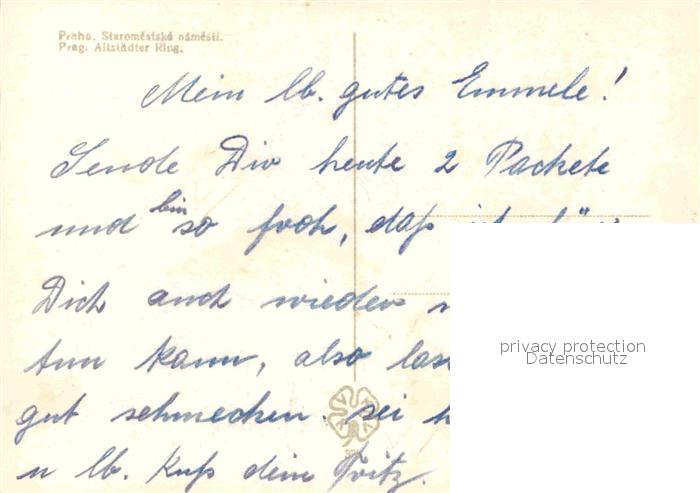 Praha. Staroměstské náměstí.
Prag. Altstädter Ring.
Mein lb. gutes Emmele!
Sende Dir heute 2 Packete
und bin so froh, daß ich für
Dich auch wieder
tun kann, also lass
gut schmecken. Sei
u lb. Kuß dein Fritz.
privacy protection
Datenschutz